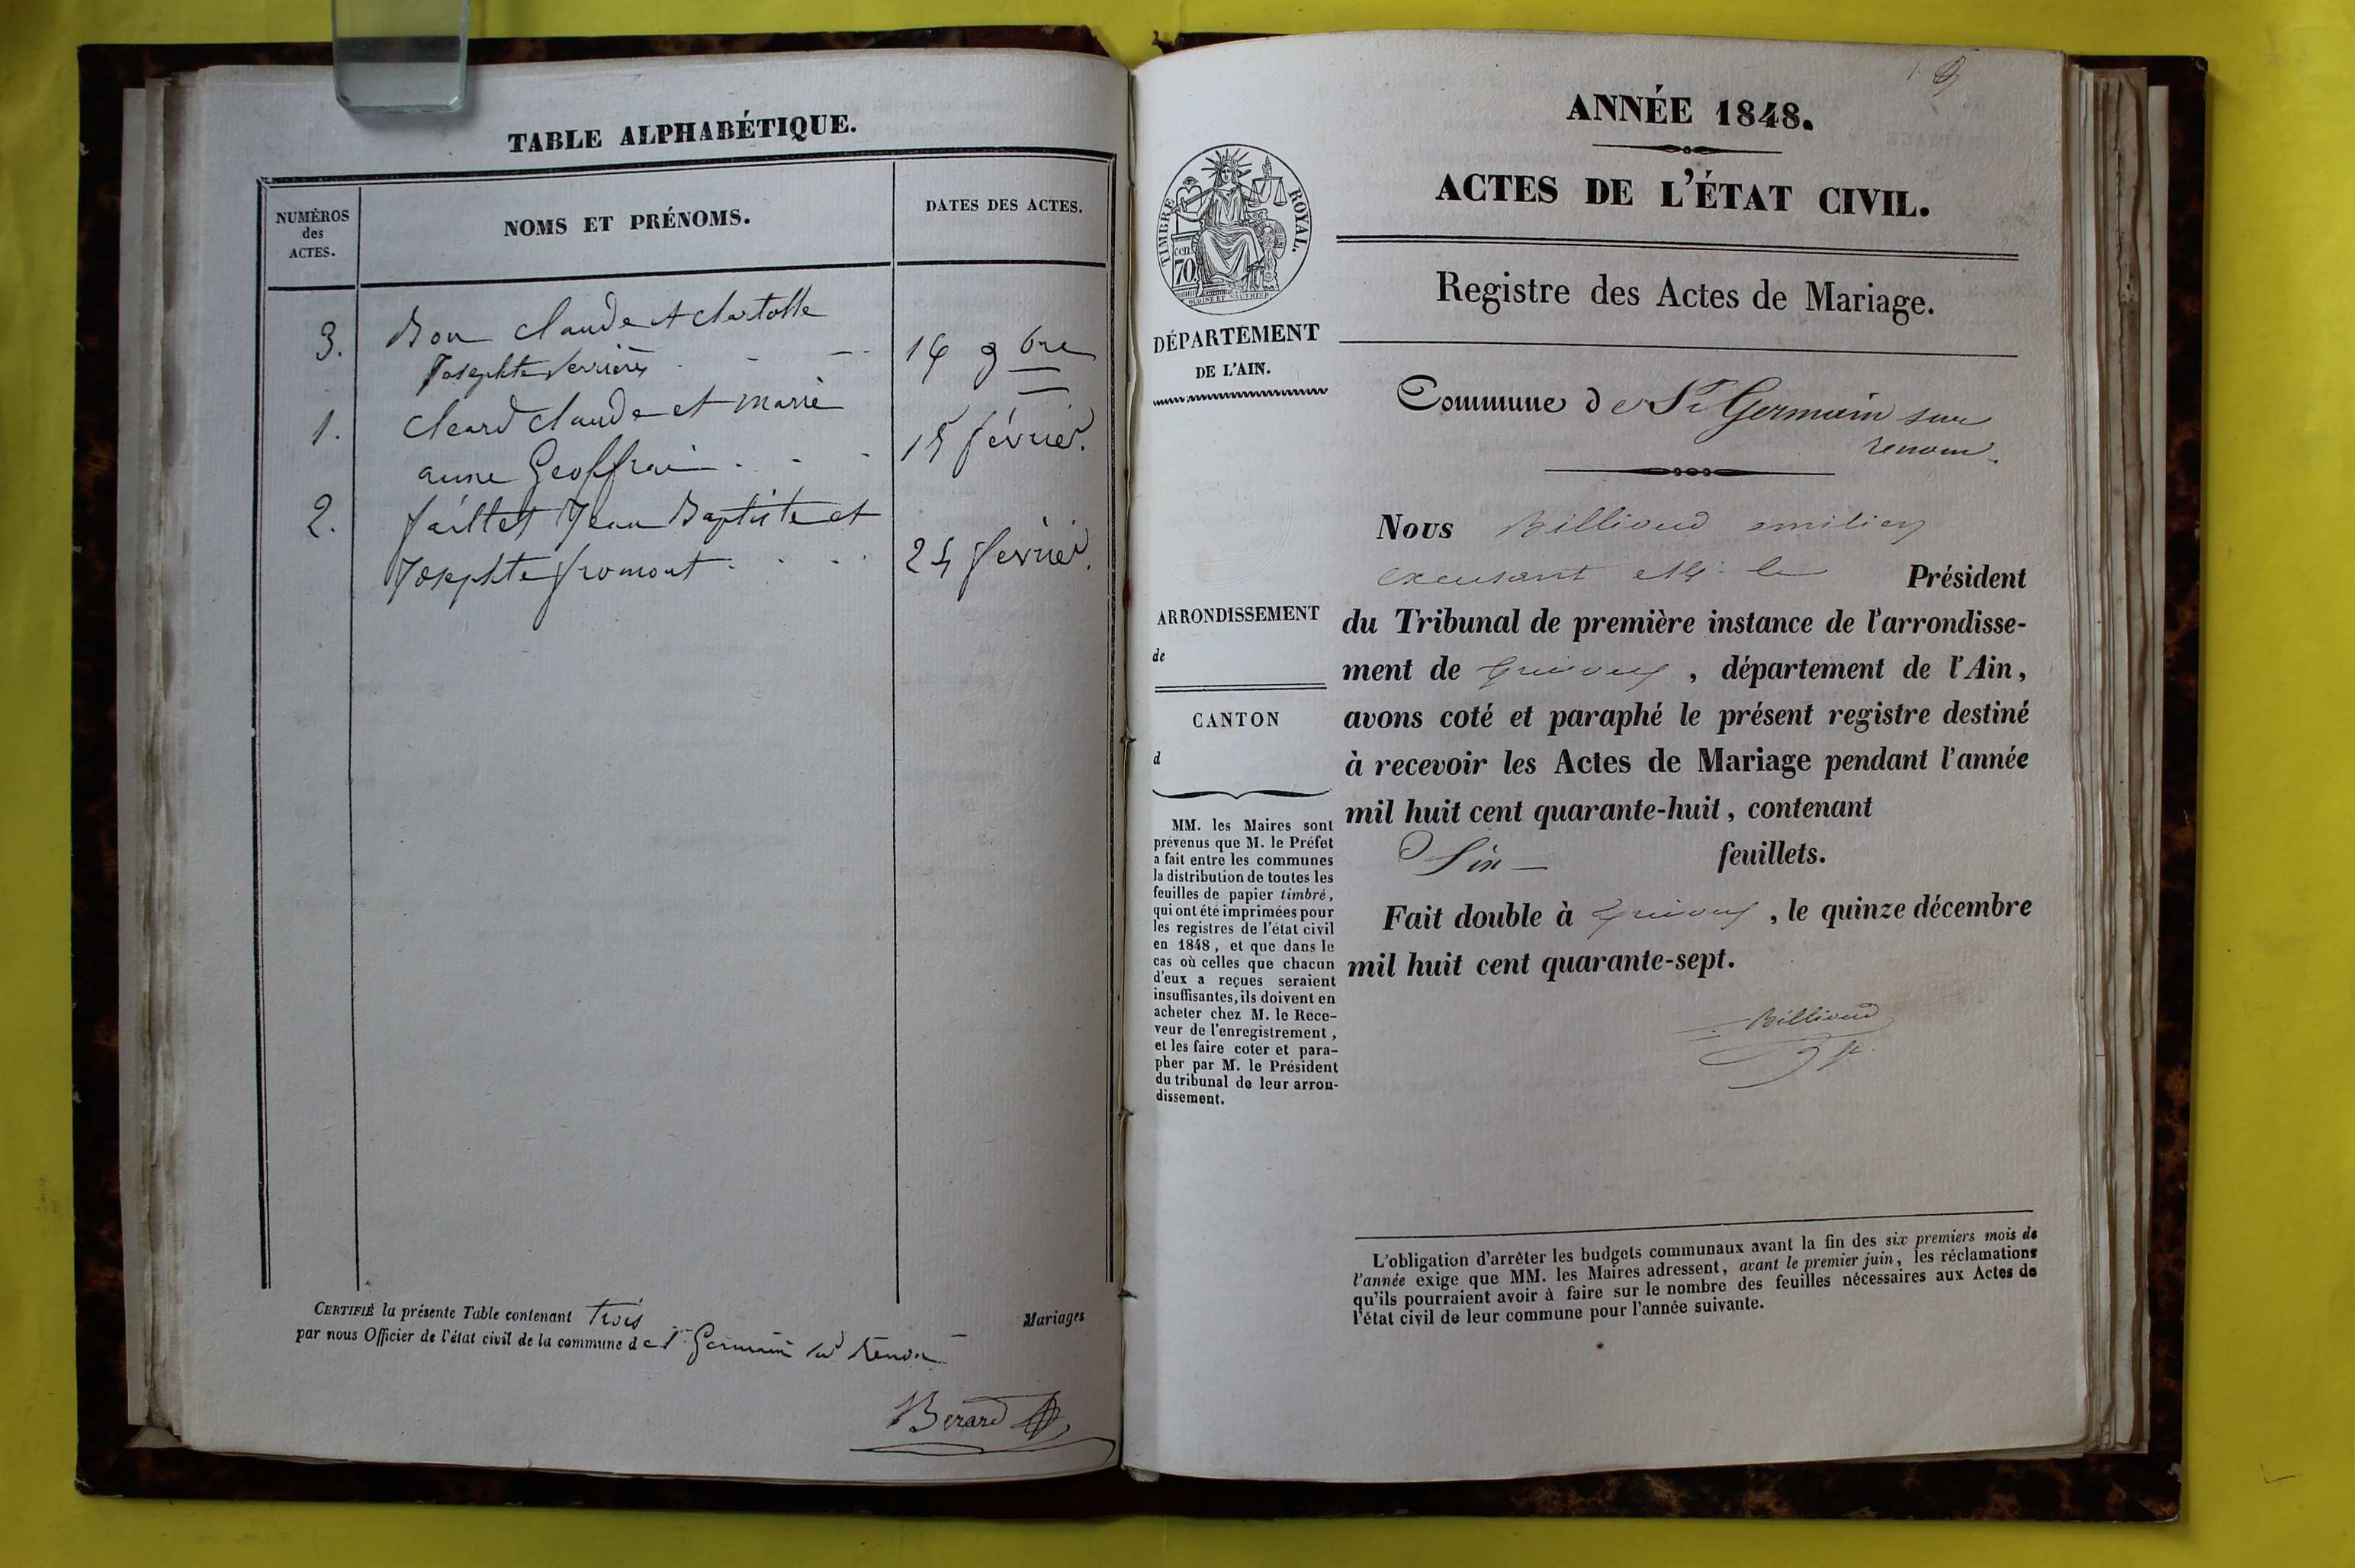 TABLE ALPHABÉTIQUE.
NUMÉROS
des
ACTES.
NOMS ET PRÉNOMS.
DATES DES ACTES.
3.
Bon Claude et
Josephte
9bre
1.
Claude et marie
anne Geoffrai
15 février.
2.
Jaillet Jean Baptiste et
Josephte fromont
24 février.
CERTIFIÉ la présente Table contenant trois
Mariages
par nous Officier de l'état civil de la commune de St Germain sur Renon
Berard
ANNÉE 1848.
ACTES DE L'ÉTAT CIVIL.
TIMBRE ROYAL.
70
cen
Registre des Actes de Mariage.
DÉPARTEMENT
DE L'AIN.
Commune de St Germain sur
renom.
Nous Billioud emilien
excusant Mr le Président
ARRONDISSEMENT
de
CANTON
d
du Tribunal de première instance de l'arrondisse-
ment de Trévoux, département de l'Ain,
avons coté et paraphé le présent registre destiné
à recevoir les Actes de Mariage pendant l'année
mil huit cent quarante-huit, contenant
Six feuillets.
Fait double à Trévoux, le quinze décembre
mil huit cent quarante-sept.
Billioud
MM. les Maires sont
prévenus que M. le Préfet
a fait entre les communes
la distribution de toutes les
feuilles de papier timbré,
qui ont été imprimées pour
les registres de l'état civil
en 1848, et que dans le
cas où celles que chacun
d'eux a reçues seraient
insuffisantes, ils doivent en
acheter chez M. le Rece-
veur de l'enregistrement,
et les faire coter et para-
pher par M. le Président
du tribunal de leur arron-
dissement.
L'obligation d'arrêter les budgets communaux avant la fin des six premiers mois de
l'année exige que MM. les Maires adressent, avant le premier juin, les réclamations
qu'ils pourraient avoir à faire sur le nombre des feuilles nécessaires aux Actes de
l'état civil de leur commune pour l'année suivante.